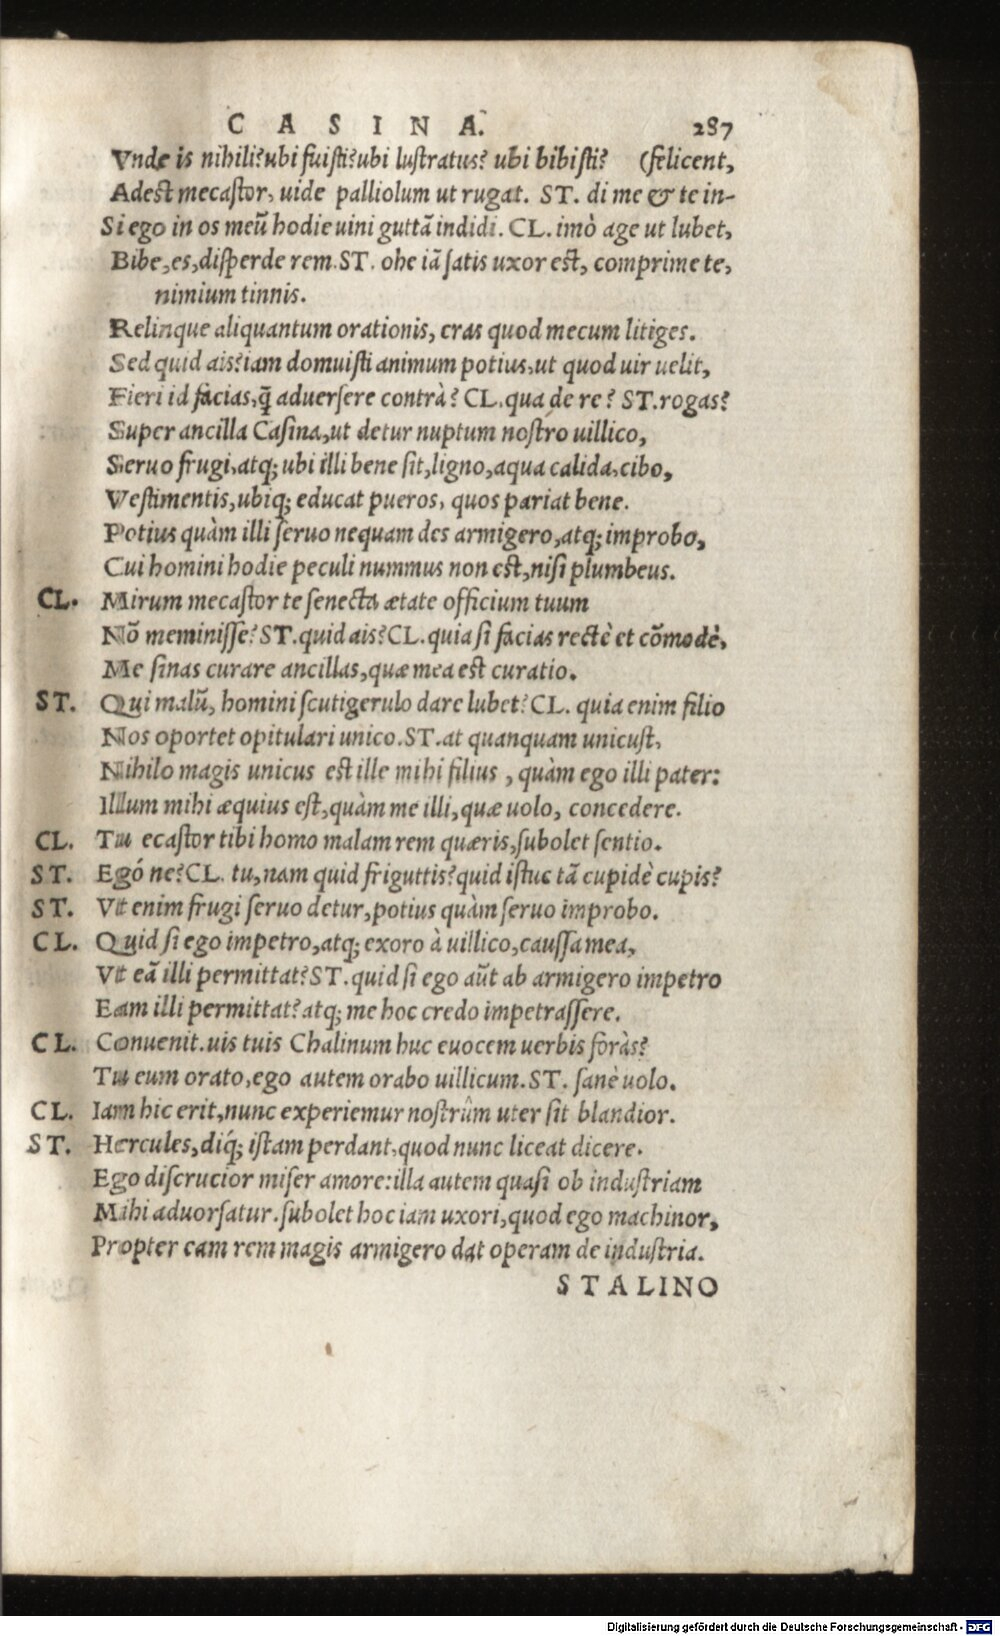 CASINA. 287
Vnde is nihili? ubi fuisti? ubi lustratus? ubi bibisti? (felicent,
Adest mecastor, uide palliolum ut rugat. ST. di me & te in-
Si ego in os meū hodie uini guttā indidi. CL. imò age ut lubet,
Bibe, es, disperde rem. ST. ohe iā satis uxor est, comprime te,
nimium tinnis.
Relinque aliquantum orationis, cras quod mecum litiges.
Sed quid ais? iam domuisti animum potius, ut quod uir uelit,
Fieri id facias, q̃ aduersere contrà? CL. qua de re? ST. rogas?
Super ancilla Casina, ut detur nuptum nostro uillico,
Seruo frugi, atq; ubi illi bene sit, ligno, aqua calida, cibo,
Vestimentis, ubiq; educat pueros, quos pariat bene.
Potius quàm illi seruo nequam des armigero, atq; improbo,
Cui homini hodie peculi nummus non est, nisi plumbeus.
CL. Mirum mecastor te senecta ætate officium tuum
Nō meminisse? ST. quid ais? CL. quia si facias rectè et cōmodè,
Me sinas curare ancillas, quæ mea est curatio.
ST. Qui malū, homini scutigerulo dare lubet? CL. quia enim filio
Nos oportet opitulari unico. ST. at quanquam unicust,
Nihilo magis unicus est ille mihi filius, quàm ego illi pater:
Illum mihi æquius est, quàm me illi, quæ uolo, concedere.
CL. Tu ecastor tibi homo malam rem quæris, subolet sentio.
ST. Egó ne? CL. tu, nam quid friguttis? quid istuc tā cupidè cupis?
ST. Vt enim frugi seruo detur, potius quàm seruo improbo.
CL. Quid si ego impetro, atq; exoro à uillico, caussa mea,
Vt eā illi permittat? ST. quid si ego aūt ab armigero impetro
Eam illi permittat? atq; me hoc credo impetrassere.
CL. Conuenit. uis tuis Chalinum huc euocem uerbis foràs?
Tu eum orato, ego autem orabo uillicum. ST. sanè uolo.
CL. Iam hic erit, nunc experiemur nostrûm uter sit blandior.
ST. Hercules, diq́; istam perdant, quod nunc liceat dicere.
Ego discrucior miser amore: illa autem quasi ob industriam
Mihi aduorsatur. subolet hoc iam uxori, quod ego machinor,
Propter eam rem magis armigero dat operam de industria.
STALINO
Digitalisierung gefördert durch die Deutsche Forschungsgemeinschaft - DFG